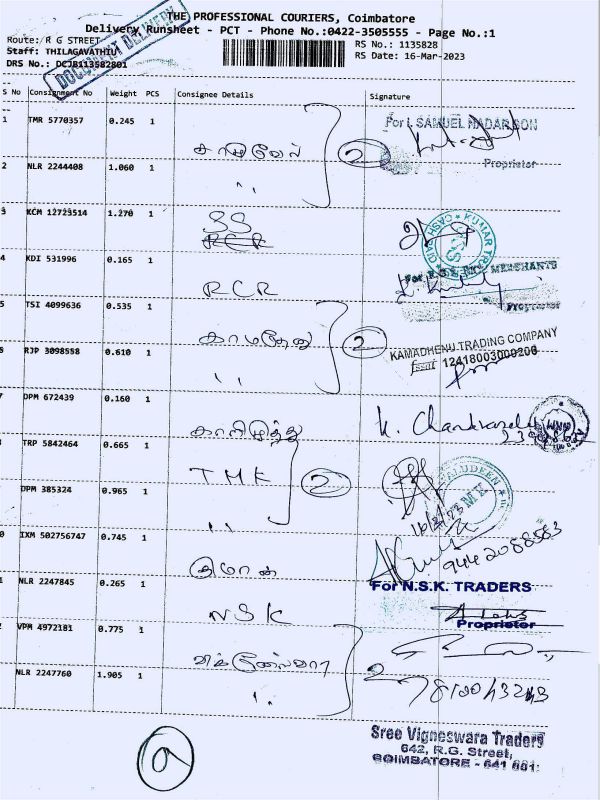 THE PROFESSIONAL COURIERS, Coimbatore
Delivery Runsheet - PCT - Phone No.:0422-3505555 - Page No.:1
Route: R G STREET
RS No.: 1135828
Staff: THILAGAVATHIU
RS Date: 16-Mar-2023
DRS No.: DCJB113582801
DOCUMENT DELIVERY
S No Consignment No Weight PCS Consignee Details Signature
1 TMR 5770357 0.245 1
For I. SAMUEL NADAR SON
Proprietor
2
2 NLR 2244408 1.060 1
,,
3 KCM 12723514 1.270 1 SS
RCR
4 KDI 531996 0.165 1 RCR
MERCHANTS
Proprietor
5 TSI 4099636 0.535 1 காமதேனு
2
KAMADHENU TRADING COMPANY
fssai 12418003000206
6 RJP 3098558 0.610 1 ,,
7 DPM 672439 0.160 1
K.
8 TRP 5842464 0.665 1 TMK
2
DPM 385324 0.965 1 ,,
16/3/23
0 IXM 502756747 0.745 1
9442088583
1 NLR 2247845 0.265 1 NSK
For N.S.K. TRADERS
Proprietor
2 VPM 4972181 0.775 1 விக்னேஸ்வரா
2
NLR 2247760 1.905 1 ,,
Sree Vigneswara Traders
642, R.G. Street,
COIMBATORE - 641 001.
9